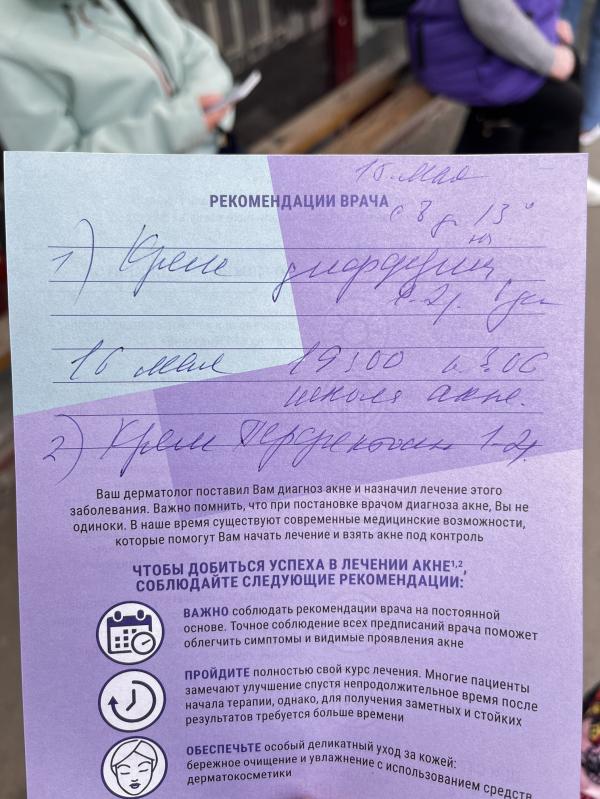 15 мая
РЕКОМЕНДАЦИИ ВРАЧА
с 8 д 13
1) Крем
1-2р.
16 мая 19:00
школа акне.
2) Крем 1-2р
Ваш дерматолог поставил Вам диагноз акне и назначил лечение этого
заболевания. Важно помнить, что при постановке врачом диагноза акне, Вы не
одиноки. В наше время существуют современные медицинские возможности,
которые помогут Вам начать лечение и взять акне под контроль
ЧТОБЫ ДОБИТЬСЯ УСПЕХА В ЛЕЧЕНИИ АКНЕ1,2,
СОБЛЮДАЙТЕ СЛЕДУЮЩИЕ РЕКОМЕНДАЦИИ:
ВАЖНО соблюдать рекомендации врача на постоянной
основе. Точное соблюдение всех предписаний врача поможет
облегчить симптомы и видимые проявления акне
ПРОЙДИТЕ полностью свой курс лечения. Многие пациенты
замечают улучшение спустя непродолжительное время после
начала терапии, однако, для получения заметных и стойких
результатов требуется больше времени
ОБЕСПЕЧЬТЕ особый деликатный уход за кожей:
бережное очищение и увлажнение с использованием средств
дерматокосметики